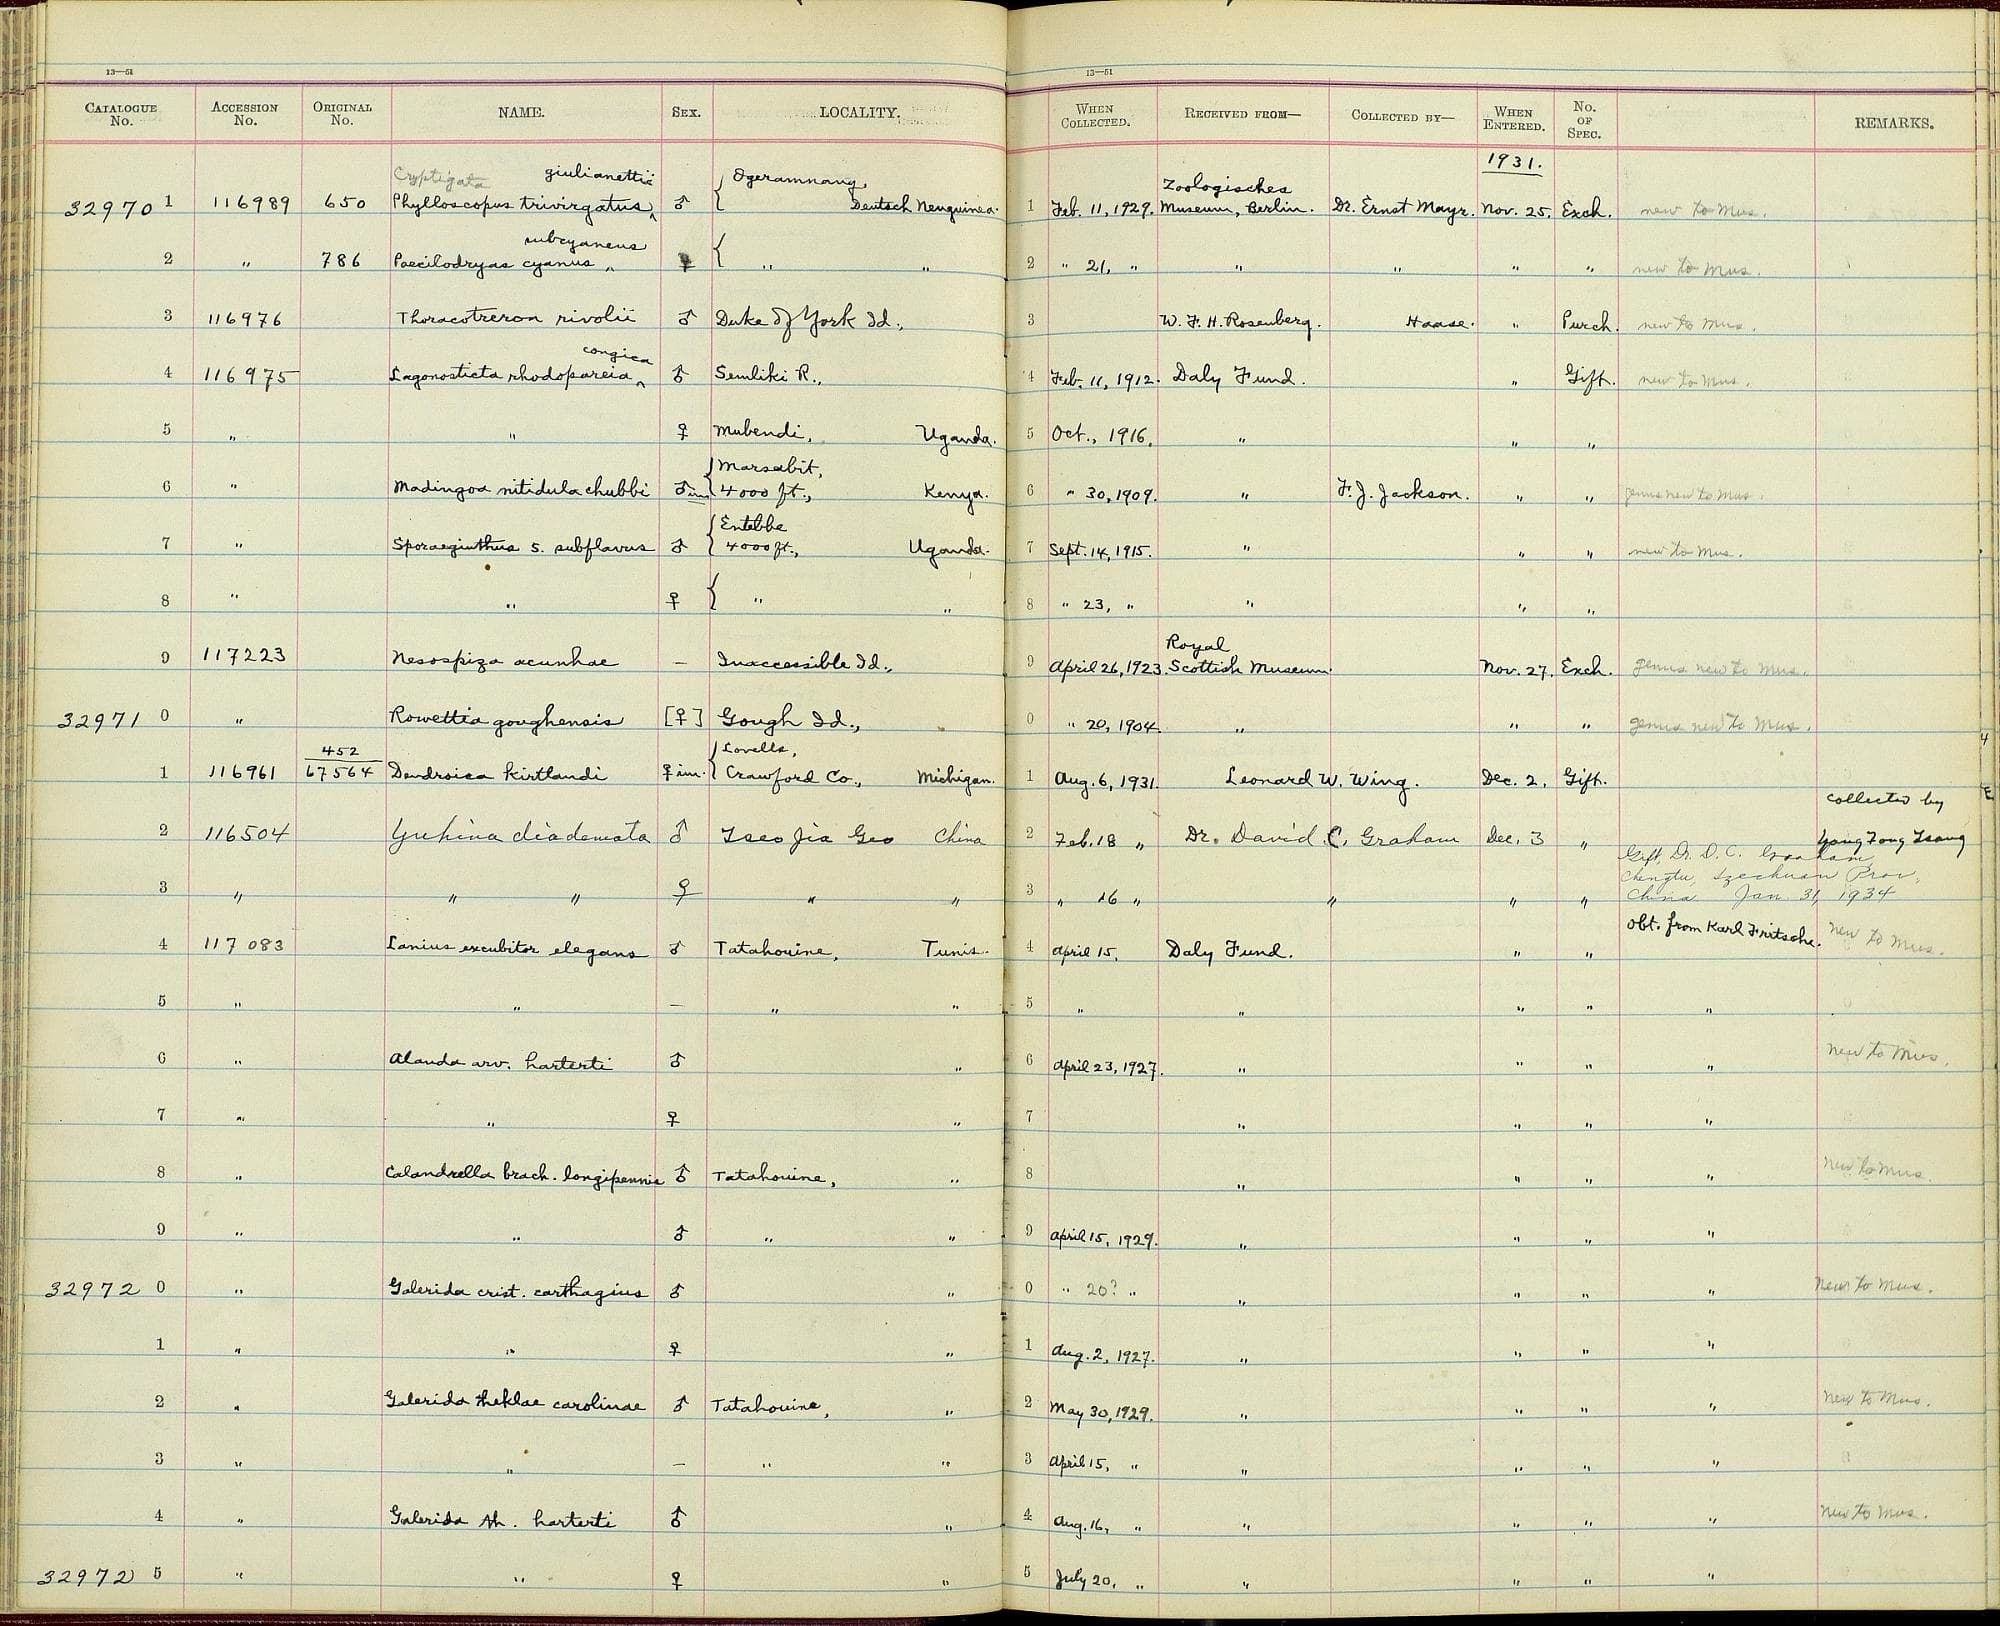 13—51
13—51
CATALOGUE No. ACCESSION No. ORIGINAL No. NAME. SEX. LOCALITY. WHEN COLLECTED. RECEIVED FROM— COLLECTED BY— WHEN ENTERED. No. OF SPEC. REMARKS.
1931.
Cryptigata giulianettii Ogeramnang, Zoologisches
32970 1 116989 650 Phylloscopus trivirgatus ‸ ♂ { Deutsch Neuguinea. 1 Feb. 11, 1929. Museum, Berlin. Dr. Ernst Mayr. Nov. 25. Exch. new to Mus.
subcyaneus
2 " 786 Poecilodryas cyanus " ♀ { " " 2 " 21, " " " " " new to Mus.
3 116976 Thoracotreron rivolii ♂ Duke of York Id., 3 W. F. H. Rosenberg. Haase. " Purch. new to Mus.
congica
4 116975 Lagonosticta rhodopareia ‸ ♂ Semliki R., 4 Feb. 11, 1912. Daly Fund. " Gift. new to Mus.
5 " " ♀ Mubendi, Uganda. 5 Oct., 1916. " " "
Marsabit,
6 " Madingoa nitidula chubbi ♂ im { 4000 ft., Kenya. 6 " 30, 1909. " F. J. Jackson. " " genus new to Mus.
Entebbe
7 " Sporaeginthus s. subflavus ♂ { 4000 ft., Uganda. 7 Sept. 14, 1915. " " " new to Mus.
8 " " ♀ { " " 8 " 23, " " " "
Royal
9 117223 Nesospiza acunhae — Inaccessible Id., 9 April 26, 1923. Scottish Museum Nov. 27. Exch. genus new to Mus.
32971 0 " Rowettia goughensis [♀] Gough Id., 0 " 20, 1904. " " " genus new to Mus.
452 Lovells,
1 116961 67564 Dendroica kirtlandi ♀ im. { Crawford Co., Michigan. 1 Aug. 6, 1931. Leonard W. Wing. Dec. 2, Gift.
collected by
2 116504 Yuhina diademata ♂ Tseo Jia Geo China 2 Feb. 18 " Dr. David C. Graham Dec. 3 " Yang Fong Tsang
Gift, Dr. D. C. Graham,
Chengtu, Szechuan Prov.,
3 " " " ♀ " " 3 " 16 " " " " China Jan. 31, 1934
4 117083 Lanius excubitor elegans ♂ Tatahouine, Tunis. 4 April 15, Daly Fund. " " obt. from Karl Fritsche. new to Mus.
5 " " — " " 5 " " " " "
6 " Alauda arv. harterti ♂ " 6 April 23, 1927. " " " " new to Mus.
7 " " ♀ " 7 " " " "
8 " Calandrella brach. longipennis ♂ Tatahouine, " 8 " " " " New to Mus.
9 " " ♂ " " 9 April 15, 1929. " " " "
32972 0 " Galerida crist. carthaginis ♂ " 0 " 20? " " " " " New to Mus.
1 " " ♀ " 1 Aug. 2, 1927. " " " "
2 " Galerida theklae carolinae ♂ Tatahouine, " 2 May 30, 1929. " " " " New to Mus.
3 " " — " " 3 April 15, " " " " "
4 " Galerida th. harterti ♂ " 4 Aug. 16, " " " " " New to Mus.
32972 5 " " ♀ " 5 July 20, " " " " "